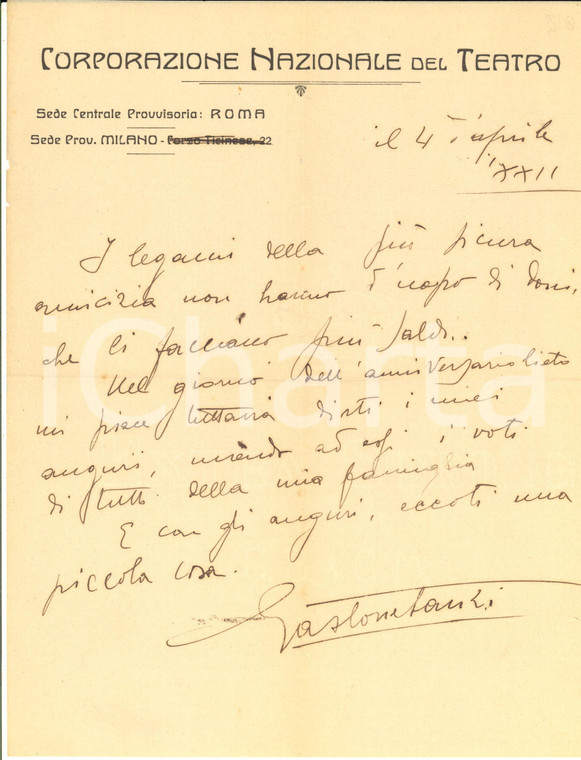 CORPORAZIONE NAZIONALE DEL TEATRO
Sede Centrale Provvisoria: ROMA
Sede Prov. MILANO - Corso Ticinese, 22
il 4 d'aprile
XXII
I legami della più sicura
amicizia non hanno d'uopo di doni,
che li facciano più saldi.
Nel giorno dell'anniversario lieto
mi piace tuttavia dirti i miei
auguri, unendo ad essi i voti
di tutti della mia famiglia
E con gli auguri, eccoti una
piccola cosa.
Gastone Tanzi
iCharta